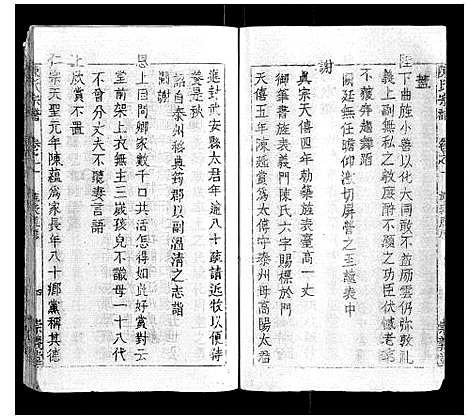 陛下曲旌小善以化大同敢不益励雲仍弥敦礼
藎服無私之教度酧不報之功臣伏憾老
不獲奔趨舞蹈
闕廷無任瞻仰激切屏營之至謹表申
謝
真宗天禧四年勅築旌表臺高一丈
御筆書旌表義門陳氏六字賜標於門
天禧五年陳 為太傅守泰州母高陽太君
進封武安縣太君年逾八十疏請近牧以便侍
養是秋
詔自泰州移典藥郡以副溫清之志詣
闕謝
恩上回問卿家數千口共活怎得如此好賞對云
堂前架上衣無主三歲孩兒不識母一十八代
不曾分丈夫不聽妻言語
上欣賞不置
仁宗天聖元年陳蘊為家長年八十鄉黨稱其德
陳氏宗譜
卷之一